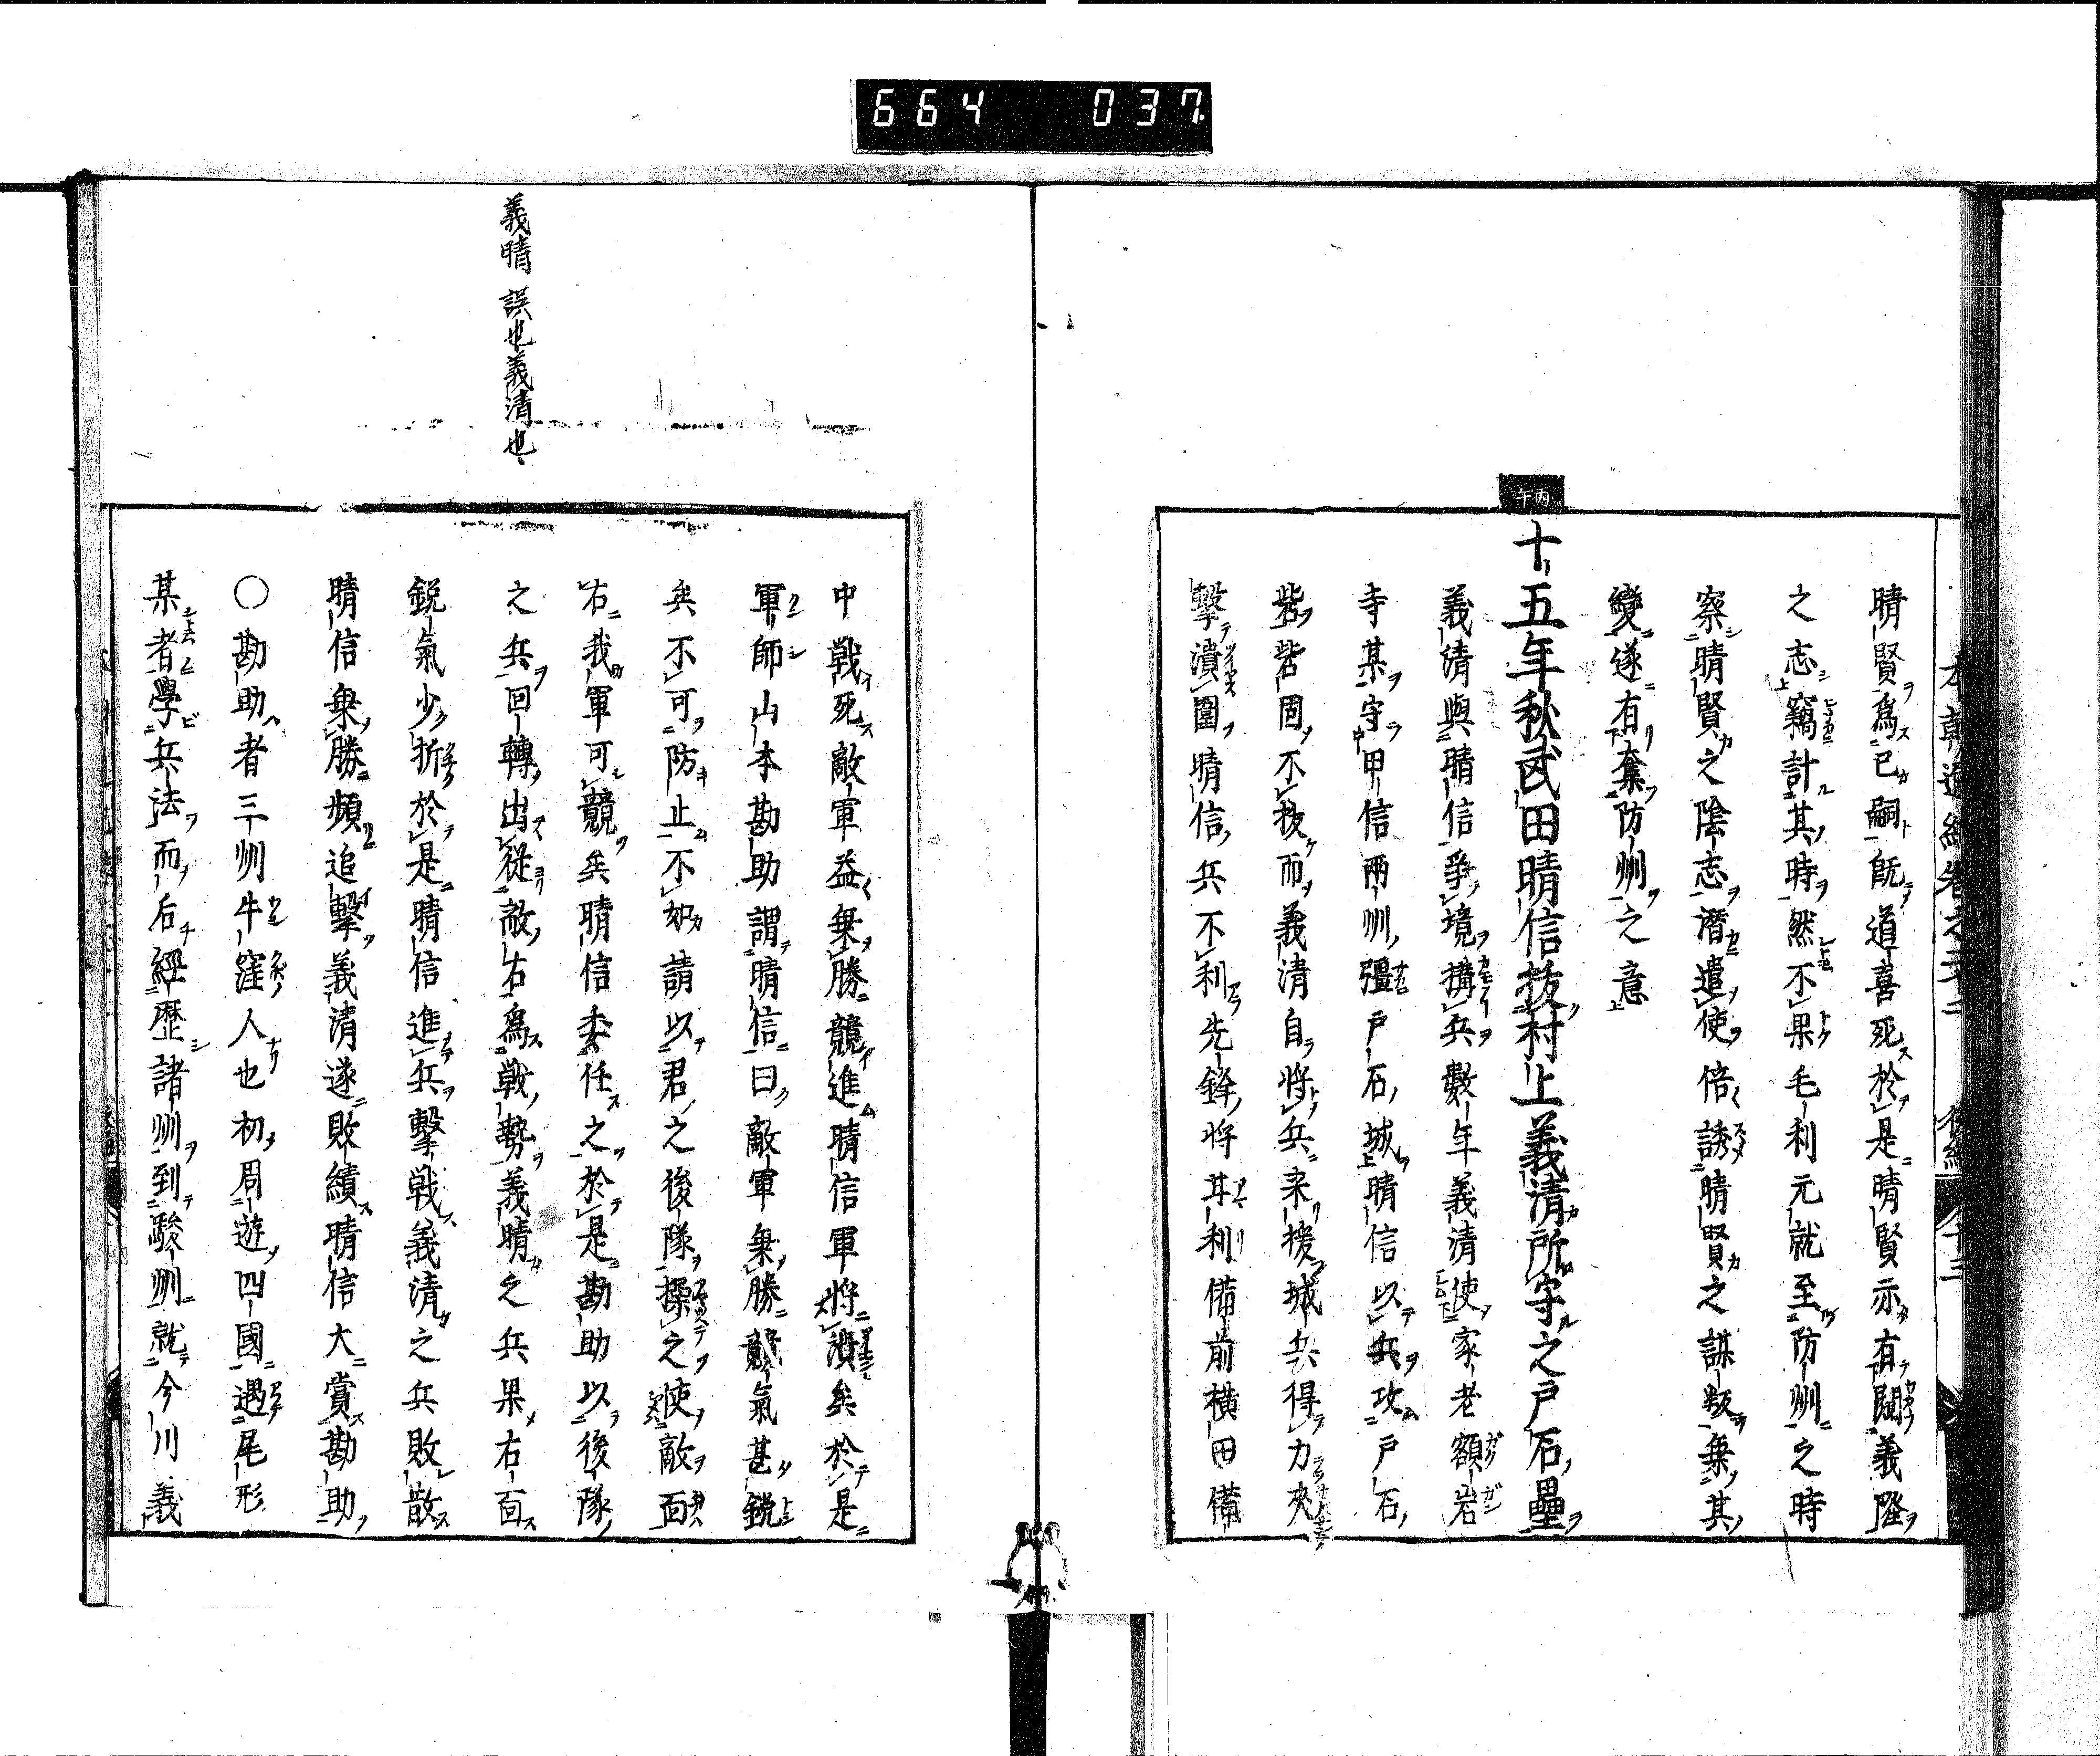 664 037
晴賢爲己嗣既道喜死於是晴賢亦有鬩義隆
之志竊計其時然不果毛利元就至防州之時
察晴賢之陰志潛遣使倍誘晴賢之謀叛乗其
變遂有奪防州之意
丙午
十五年秋武田晴信抜村上義清所守之戸石壘
義清與晴信爭境搆兵數年義清使家老額岩
寺某守甲信兩州彊戸石城晴信以兵攻戸石
砦砦固不抜而義清自將兵来援城兵得力夾
擊潰圍晴信兵不利先鋒將甘利備前横田備
義晴誤也義清也
中戰死敵軍益乗勝競進晴信軍將潰矣於是
軍師山本勘助謂晴信曰敵軍乗勝競氣甚鋭
矣不可防止不如請以君之後隊操之使敵面
右我軍可競矣晴信委任之於是勘助以後隊
之兵回轉出從敵右爲戰勢義晴之兵果右面
鋭氣少折於是晴信進兵擊戰義清之兵敗散
晴信乗勝頻追擊義清遂敗績晴信大賞勘助
○勘助者三州牛窪人也初周遊四國遇尾形
某者學兵法而后經歴諸州到駿州就今川義